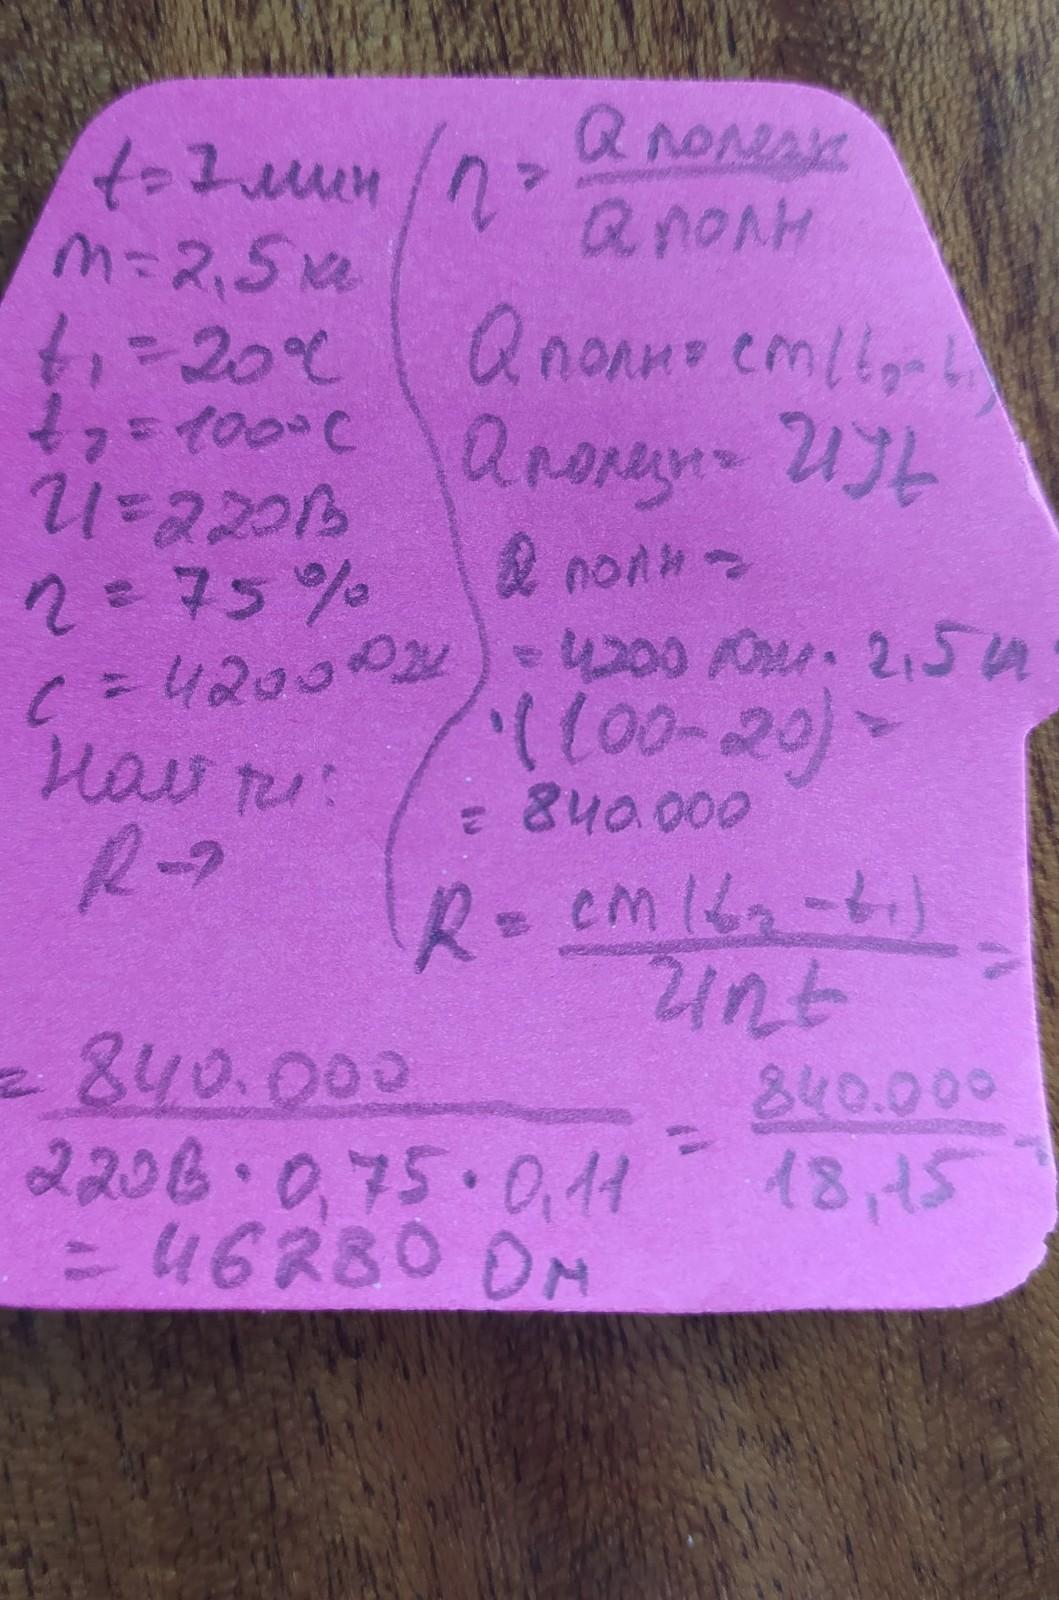 t=7 мин
m=2,5 кг
t₁=20°C
t₂=100°C
U=220В
η = 75%
c = 4200 Дж
Найти:
R →
η = Qполезн / Qполн
Qполн = cm(t₂-t₁)
Qполезн = UJt
Qполн =
= 4200 Дж · 2,5 кг ·
·(100-20) =
= 840.000
R = cm(t₂-t₁) / Uηt =
= 840.000 / 220В · 0,75 · 0,11 = 840.000 / 18,15 =
= 46280 Ом